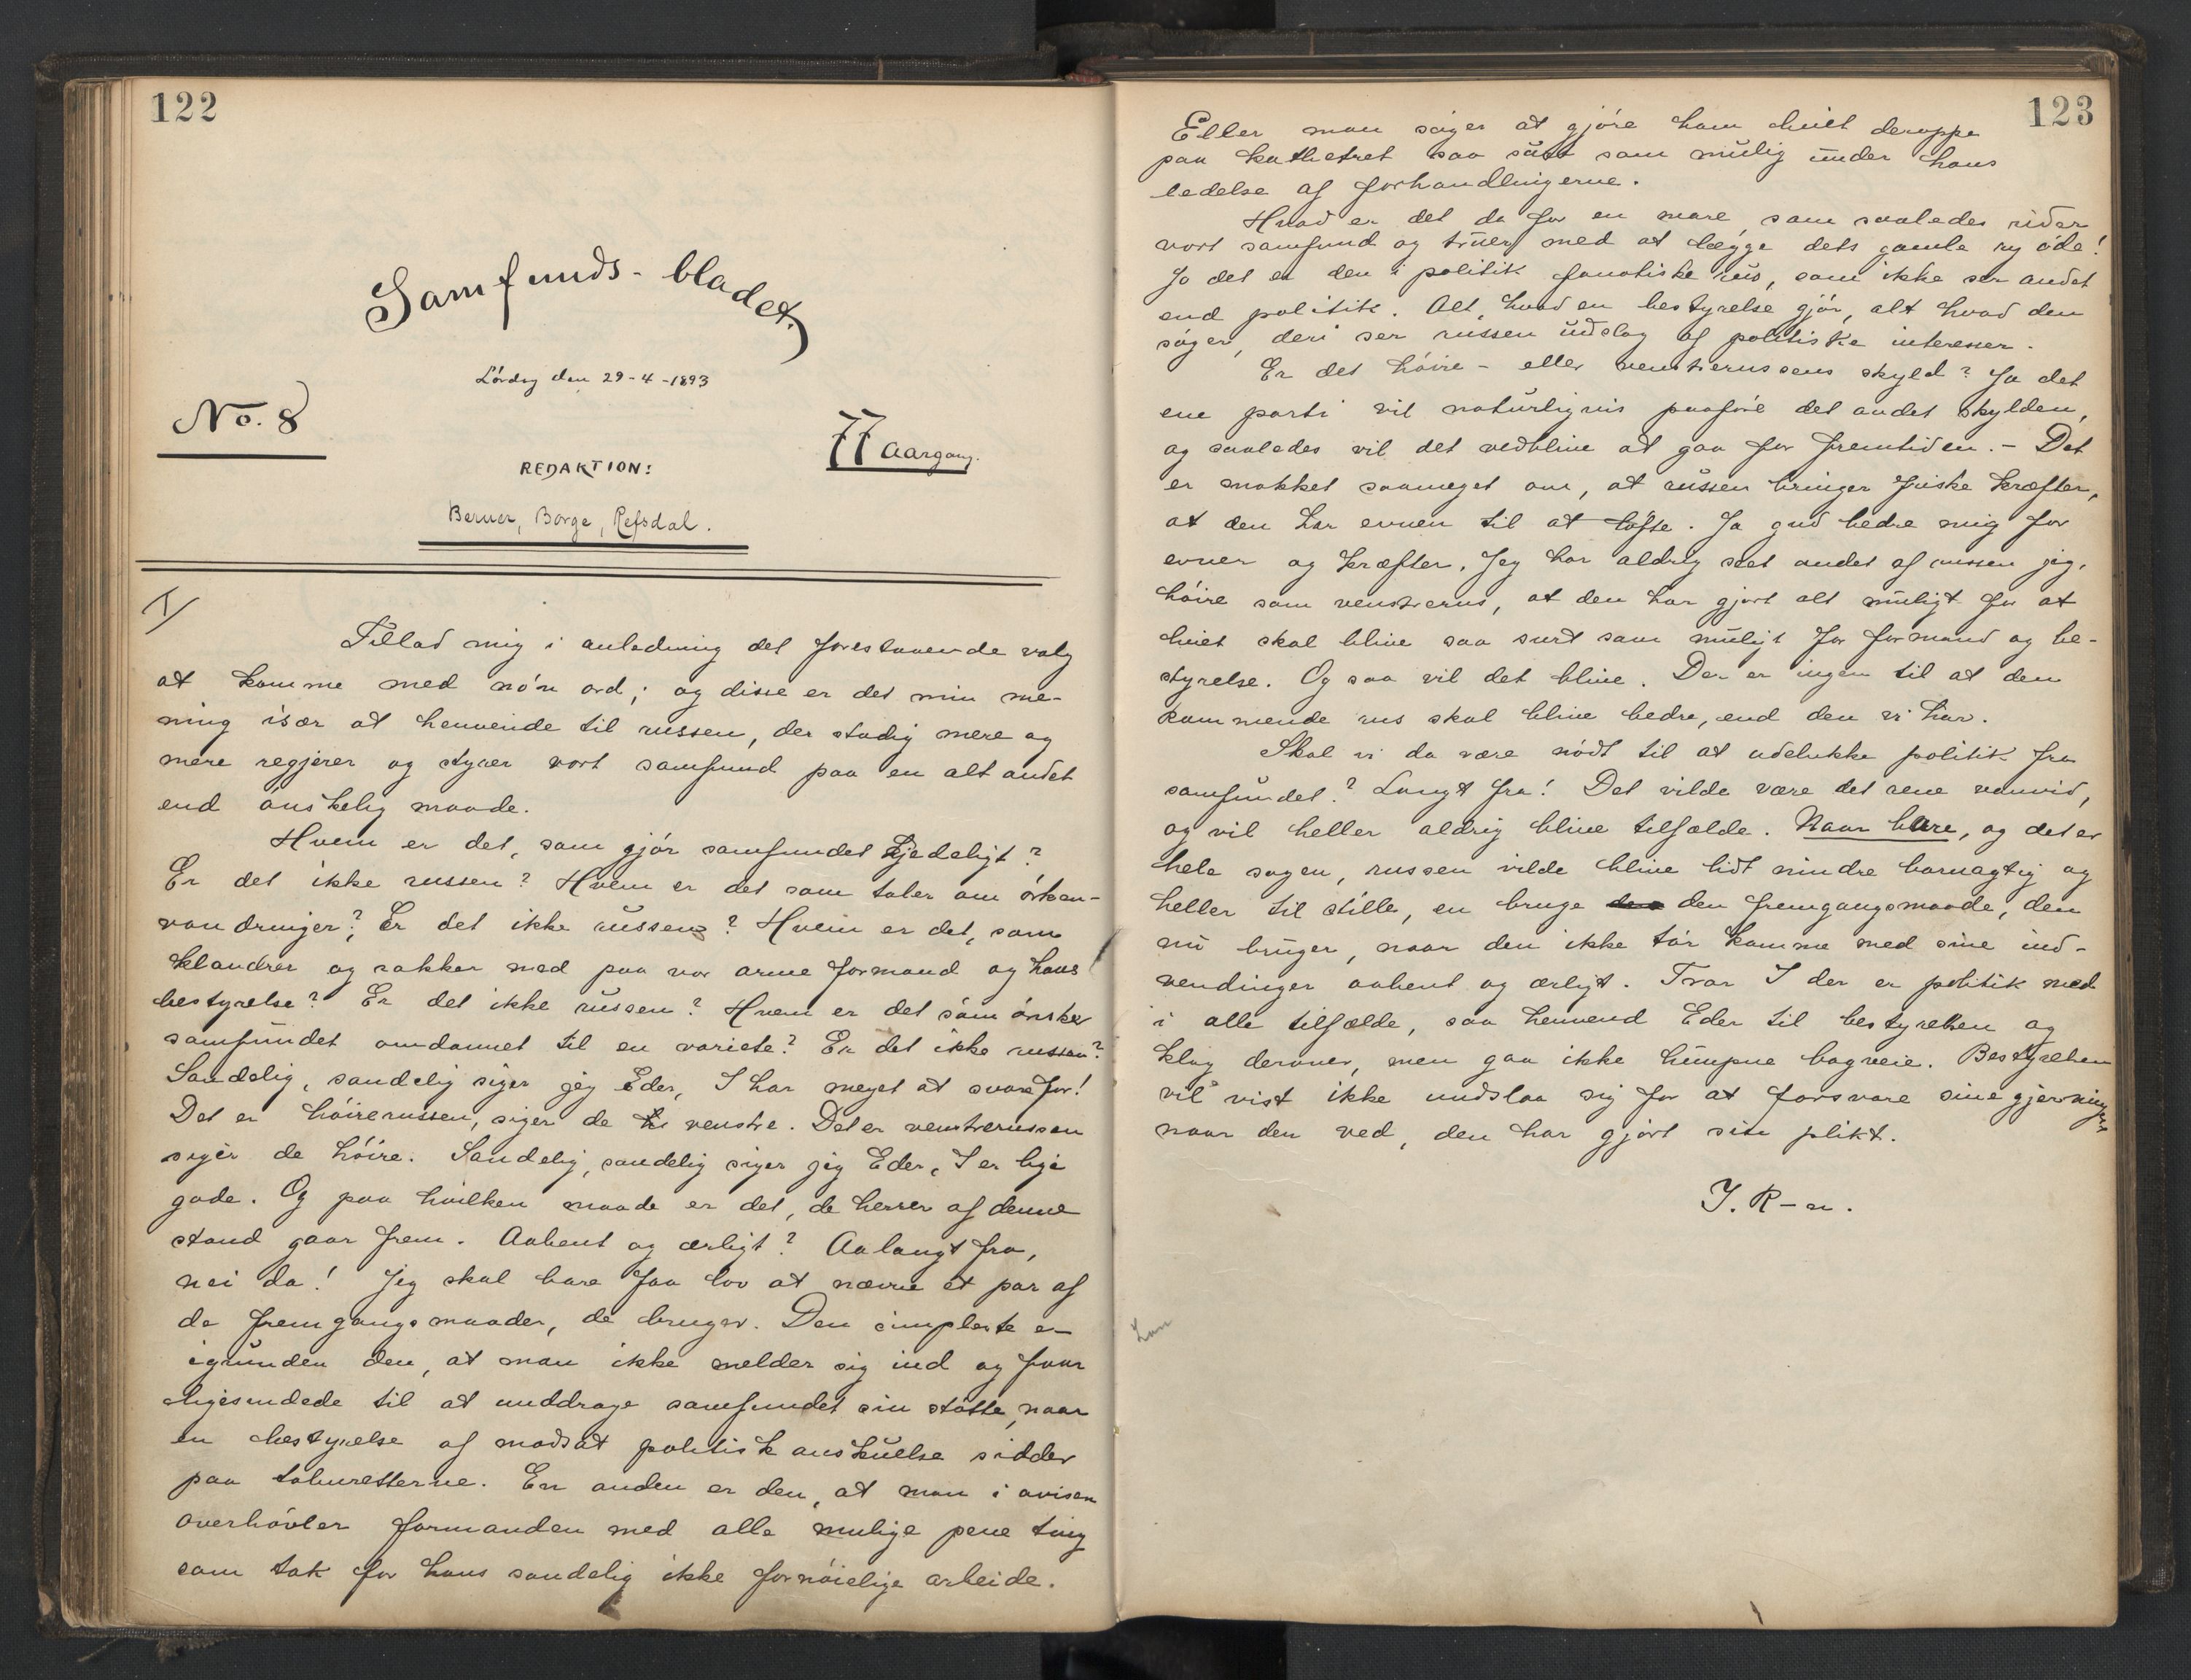 122
Samfunds-bladet.
Lørdag den 29-4-1893
No. 8
77 Aargang.
REDAKTION:
Berner, Borge, Refsdal.
I/
Tillad mig i anledning det forestaaende valg
at komme med nón ord; og disse er det min me-
ning især at henvende til russen, der stadig mere og
mere regjerer og styrer vort samfund paa en alt andet
end ónskelig maade.
Hvem er det, som gjór samfundet kjedeligt?
Er det ikke russen? Hvem er det som taler om órken-
vandringer? Er det ikke russen? Hvem er det, som
klandrer og rakker ned paa vor arme formand og hans
bestyrelse? Er det ikke russen? Hvem er det som ónsker
samfundet omdannet til en variete? Er det ikke russen?
Sandelig, sandelig siger jeg Eder, I har meget at svare for!
Det er hóirerussen, siger de venstre. Det er venstrerussen
siger de hóire. Sandelig, sandelig siger jeg Eder, I er lige
gode. Og paa hvilken maade er det, de herrer af denne
stand gaar frem. Aabent og ærligt? Aa langt fra,
nei da! Jeg skal bare faa lov at nævne et par af
de fremgangsmaader, de bruger. Den simpleste er
igrunden den, at man ikke melder sig ind og faar
ligesindede til at unddrage samfundet sin stótte, naar
en bestyrelse af modsat politisk anskuelse sidder
paa taburetterne. En anden er den, at man i avisen
overhóvler formanden med alle mulige pene ting
som tak for hans sandelig ikke fornóielige arbeide.
123
Eller man sóger at gjóre ham livet deroppe
paa kathetret saa surt som mulig under hans
ledelse af forhandlingerne.
Hvad er det da for en mare som saaledes rider
vort samfund og truer med at lægge dets gamle ry óde!
Jo det er den i politik fanatiske rus, som ikke ser andet
end politik. Alt, hvad en bestyrelse gjór, alt hvad den
sóger, deri ser russen udslag af politiske interesser.
Er det hóire- eller venstrerussens skyld? Ja det
ene parti vil naturligvis paafóre det andet skylden,
og saaledes vil det vedblive at gaa for fremtiden. - Det
er snakket saameget om, at russen bringer friske kræfter,
at den har evnen til at lófte. Ja gud bedre mig for
evner og kræfter. Jeg har aldrig seet andet af russen jeg,
hóire som venstrerus, at den har gjort alt muligt for at
livet skal blive saa surt som muligt for formand og be-
styrelse. Og saa vil det blive. Der er ingen til at den
kommende rus skal blive bedre, end den vi har.
Skal vi da være nódt til at udelukke politik fra
samfundet? Langt fra! Det vilde være det rene vanvid,
og vil heller aldrig blive tilfælde. Naar bare, og det er
hele sagen, russen vilde blive lidt mindre barnagtig og
heller til stille, en bruge den fremgangsmaade, den
nu bruger, naar den ikke tór komme med sine ind-
vendinger aabent og ærligt. Tror I der er politik med
i alle tilfælde, saa henvend Eder til bestyrelsen og
klag derover, men gaa ikke lumpne bagveie. Bestyrelsen
vil vist ikke undslaa sig for at forsvare sine gjerninger
naar den ved, den har gjort sin plikt.
J. R-n.